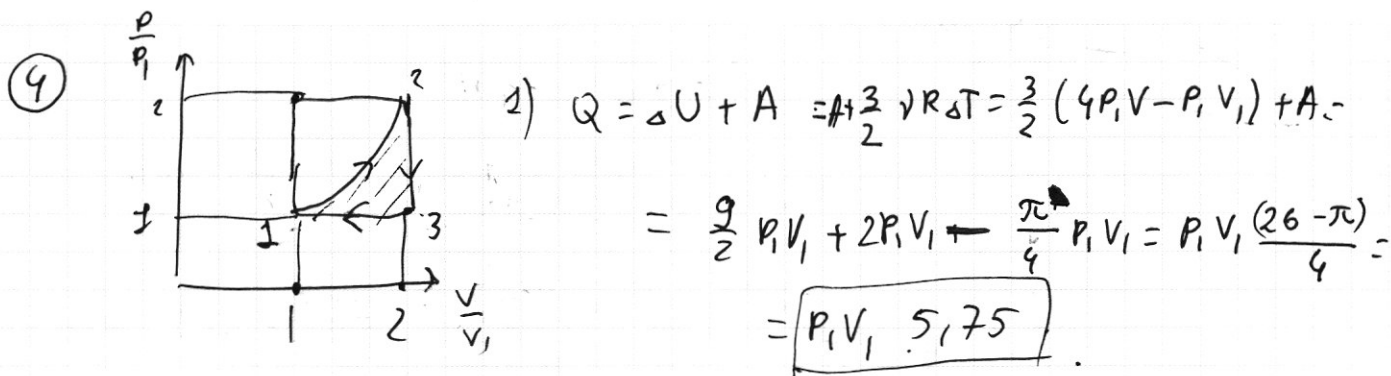 ④
P/P₁
2
1
1
2
3
1 2
V/V₁
1) Q = ΔU + A = A+3/2 νRΔT = 3/2 (4P₁V - P₁V₁) + A =
= 9/2 P₁V₁ + 2P₁V₁ - π/4 P₁V₁ = P₁V₁ (26-π)/4 =
= P₁V₁ 5,75.